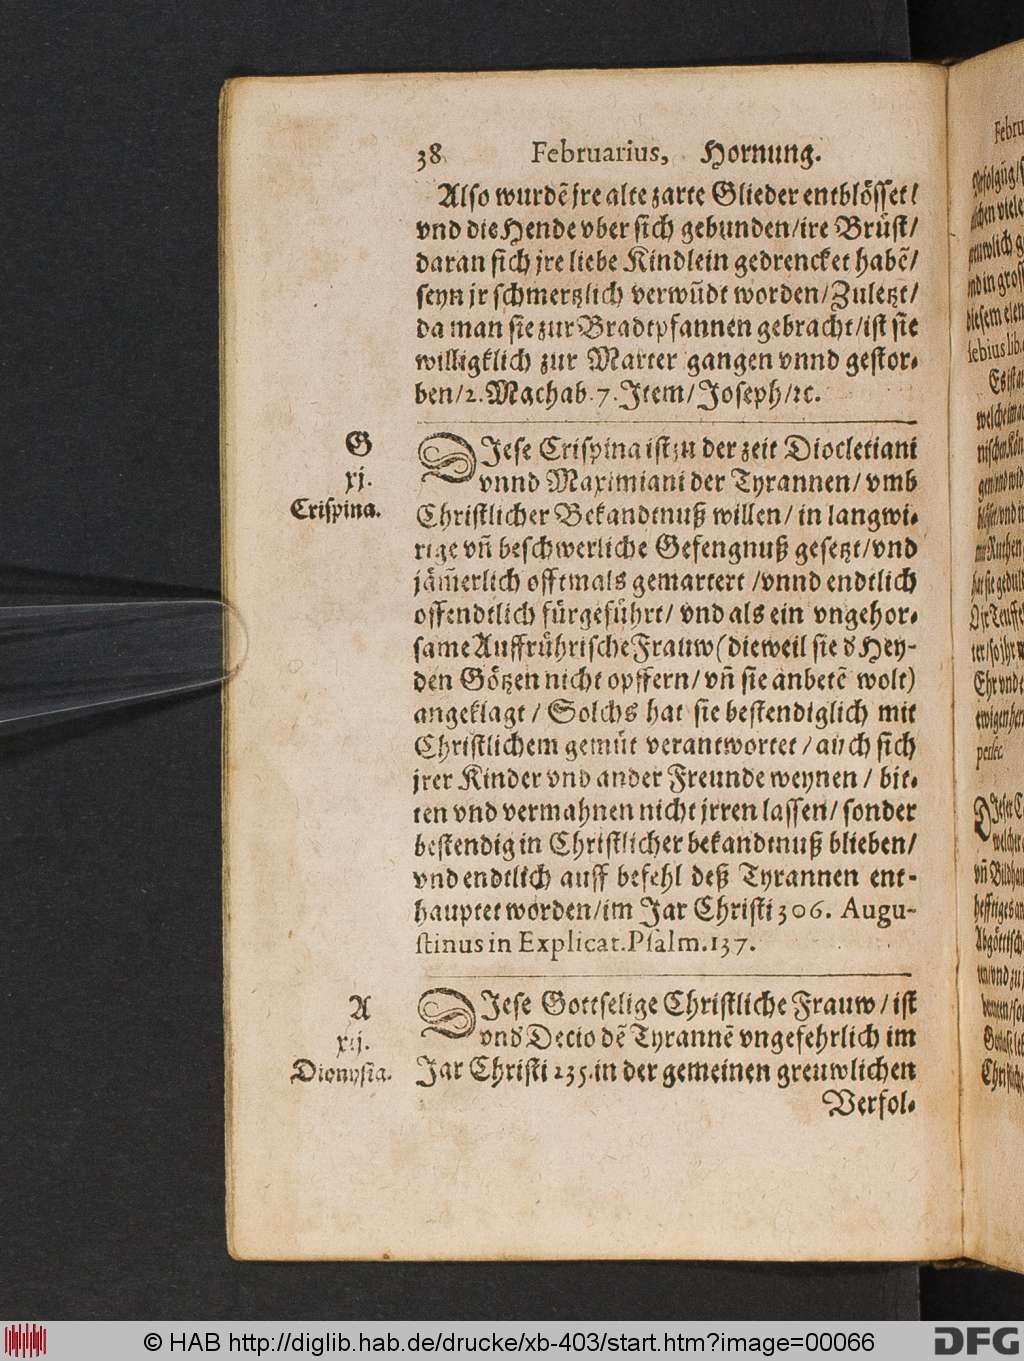 38 Februarius, Hornung.
Also wurdē jre alte zarte Glieder entblösset/
vnd die Hende vber sich gebunden/ire Brüst/
daran sich jre liebe Kindlein gedrencket habē/
seyn jr schmertzlich verwūdt worden/Zuletzt/
da man sie zur Bradtpfannen gebracht/ist sie
willigklich zur Marter gangen vnnd gestor-
ben/2.Machab.7.Item/Joseph/ꝛc.
G
xj.
Crispina.
DIese Crispina ist zu der zeit Diocletiani
vnnd Maximiani der Tyrannen/ vmb
Christlicher Bekandtnuß willen/ in langwi-
rige vñ beschwerliche Gefengnuß gesetzt/vnd
jäm̄erlich offtmals gemartert /vnnd endtlich
offendtlich fürgeführt/ vnd als ein vngehor-
same Auffrührische Frauw (dieweil sie d' Hey-
den Götzen nicht opffern/ vñ sie anbetē wolt)
angeklagt / Solchs hat sie bestendiglich mit
Christlichem gemüt verantwortet / auch sich
jrer Kinder vnd ander Freunde weynen / bit-
ten vnd vermahnen nicht jrren lassen/ sonder
bestendig in Christlicher bekandtnuß blieben/
vnd endtlich auff befehl deß Tyrannen ent-
hauptet worden/im Jar Christi 306. Augu-
stinus in Explicat.Psalm.137.
A
xij.
Dionysia.
DIese Gottselige Christliche Frauw / ist
vnd' Decio dē Tyrannē vngefehrlich im
Jar Christi 235.in der gemeinen greuwlichen
Verfol-
© HAB http://diglib.hab.de/drucke/xb-403/start.htm?image=00066
DFG